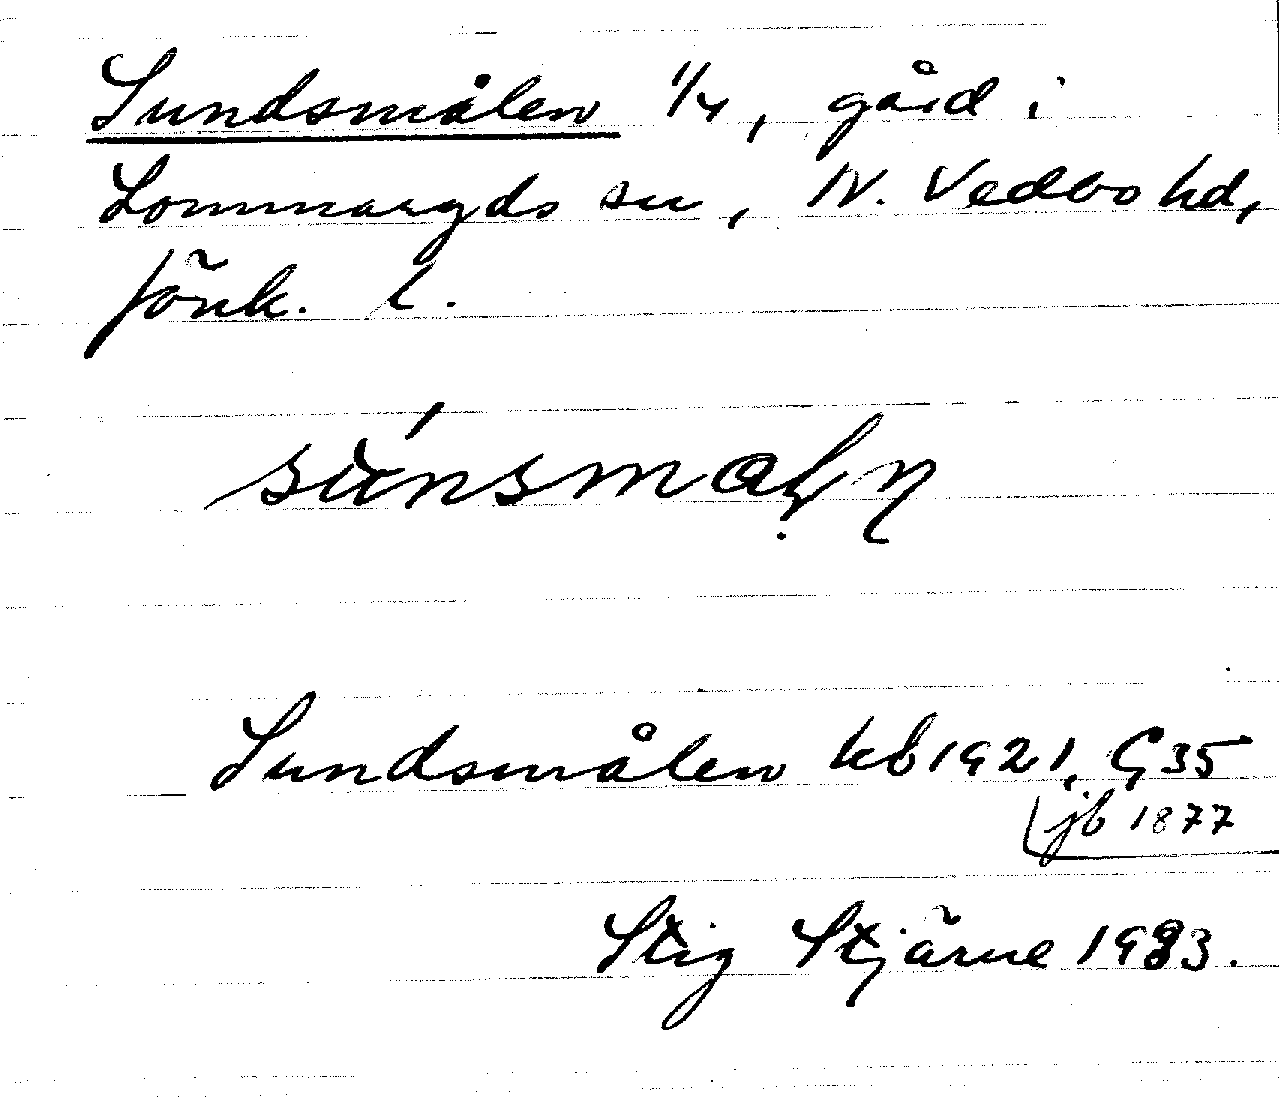 Sundsmålen 1/4, gård i
Lommaryds sn, N. Vedbo hd,
Jönk. l.
Sundsmålen kb 1921, G 35
jb 1877
Stig Stjärne 1983.